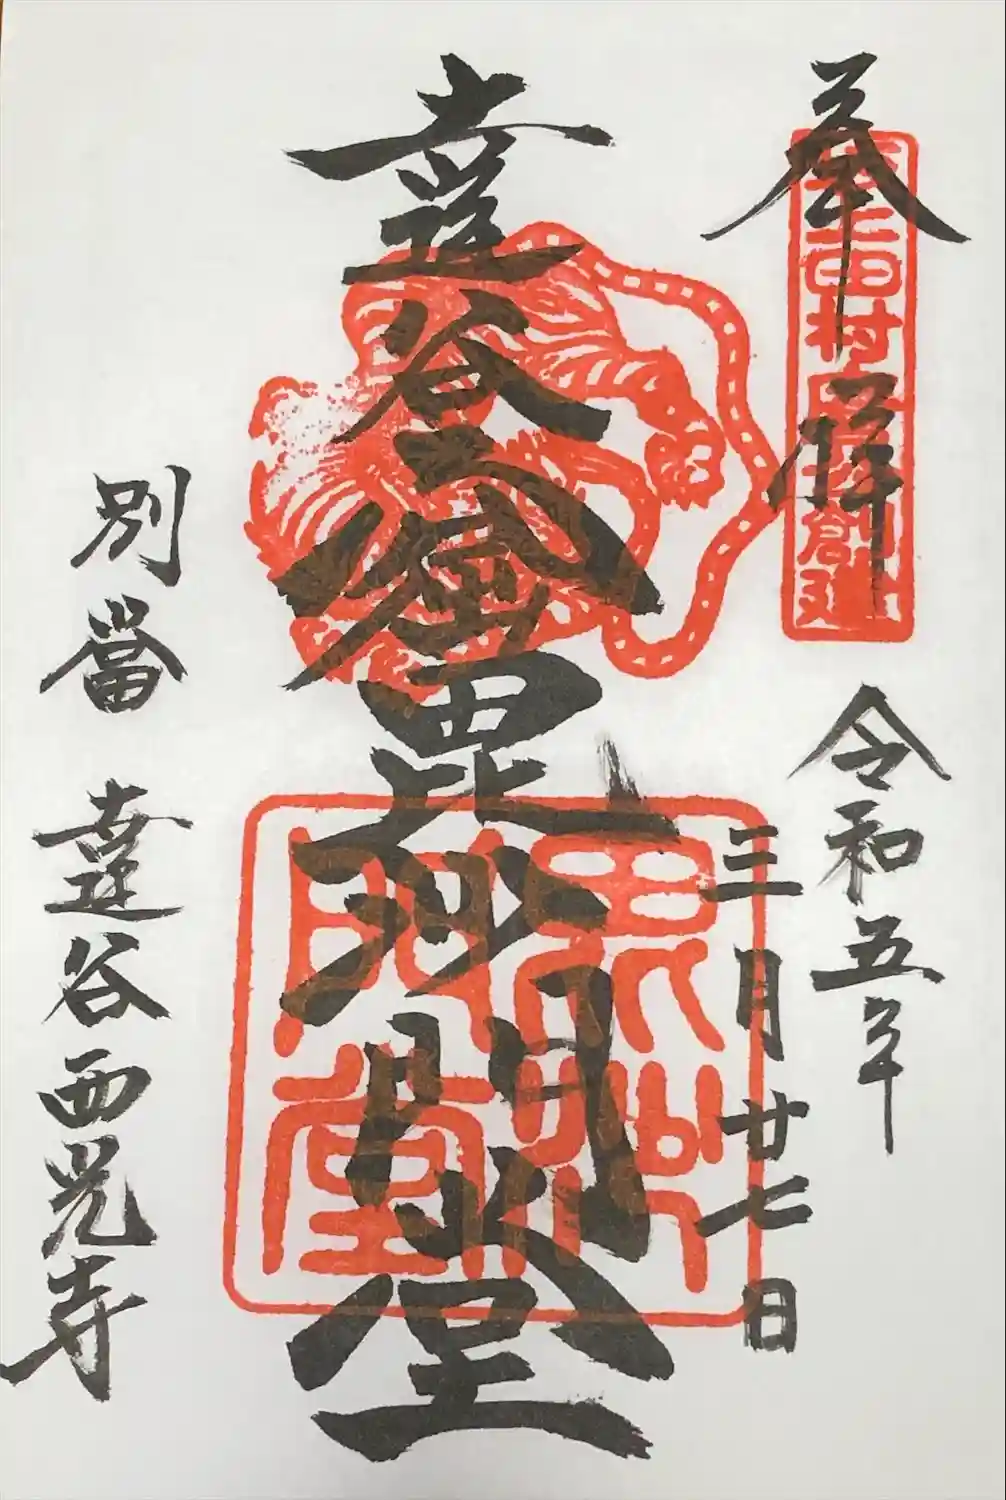 奉拝
坂上田村 創建
令和五年
三月廿七日
達谷窟毘沙門堂
毘沙門堂
別當 達谷西光寺